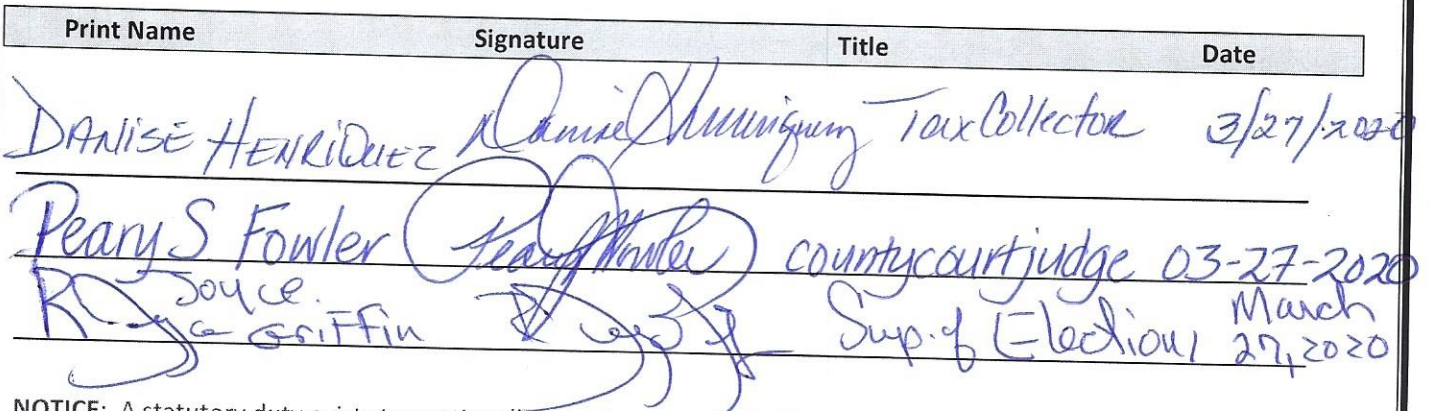 Print Name Signature Title Date
DANISE HENRIQUEZ Danise Henriquez Tax Collector 3/27/2020
Peary S Fowler Peary Fowler countycourtjudge 03-27-2020
R Joyce Griffin Sup. of Elections March 27, 2020
NOTICE: A statutory duty